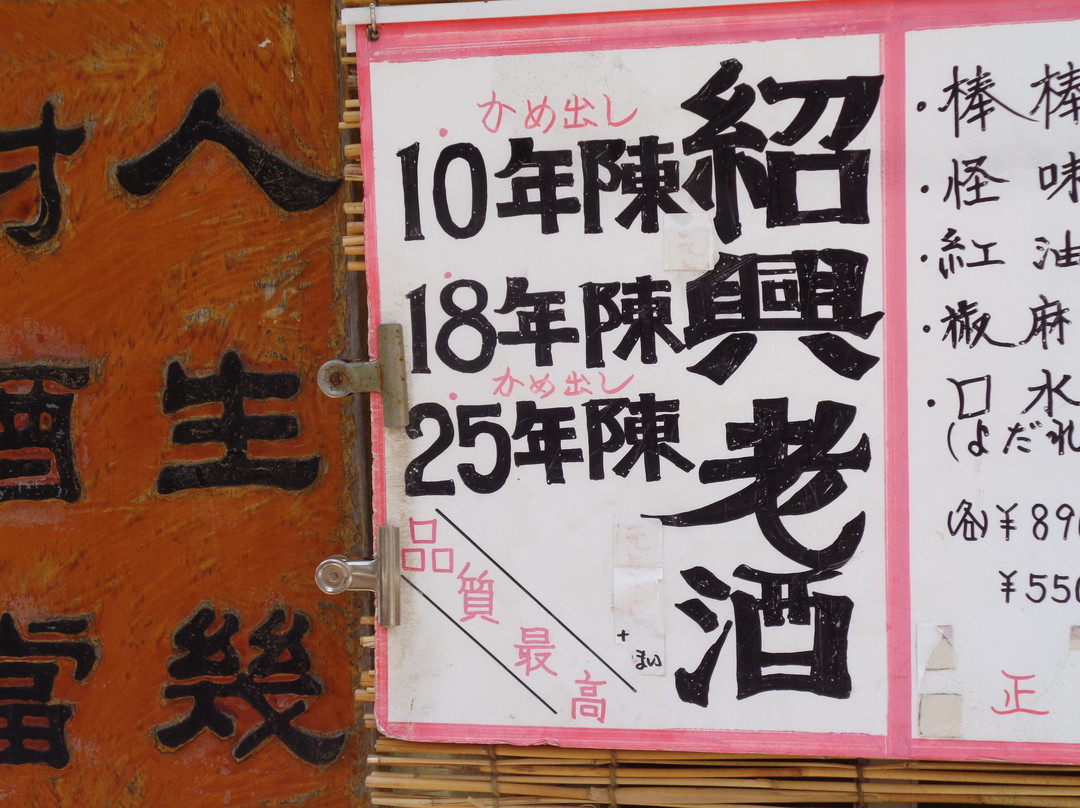 人生幾
酒當
紹興老酒
かめ出し
10年陳
18年陳
かめ出し
25年陳
品質最高
・棒棒
・怪味
・紅油
・椒麻
・口水
(よだれ
(各)¥890
¥550
正